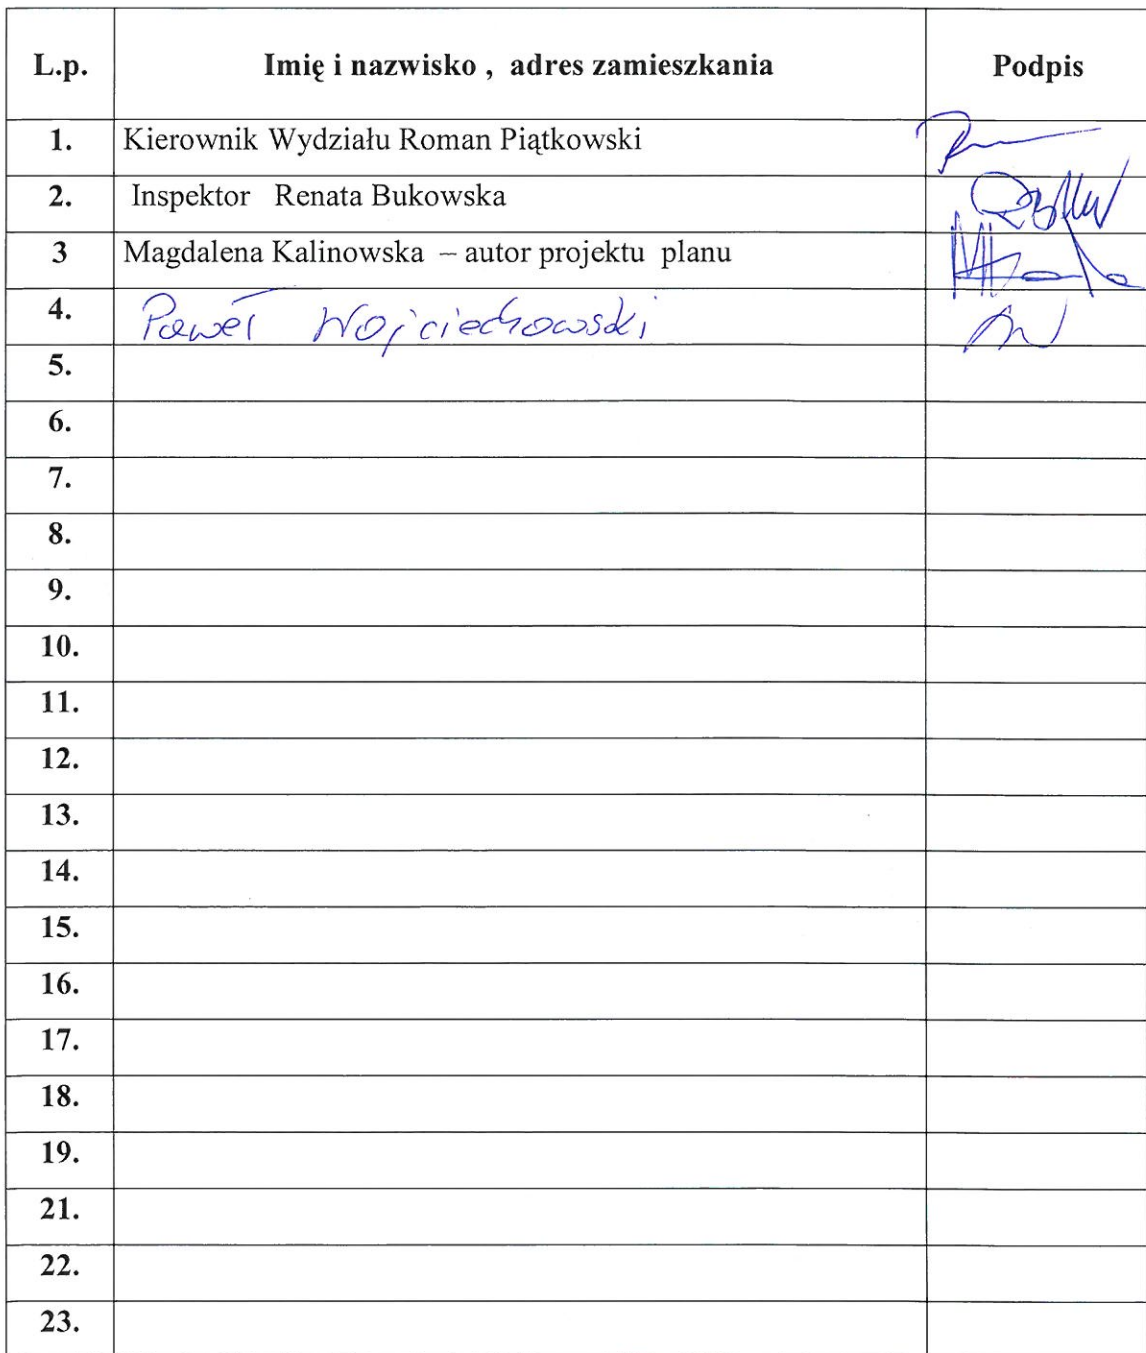 L.p. Imię i nazwisko , adres zamieszkania Podpis
1. Kierownik Wydziału Roman Piątkowski
2. Inspektor Renata Bukowska
3 Magdalena Kalinowska – autor projektu planu
4. Paweł Wojciechowski
5.
6.
7.
8.
9.
10.
11.
12.
13.
14.
15.
16.
17.
18.
19.
21.
22.
23.